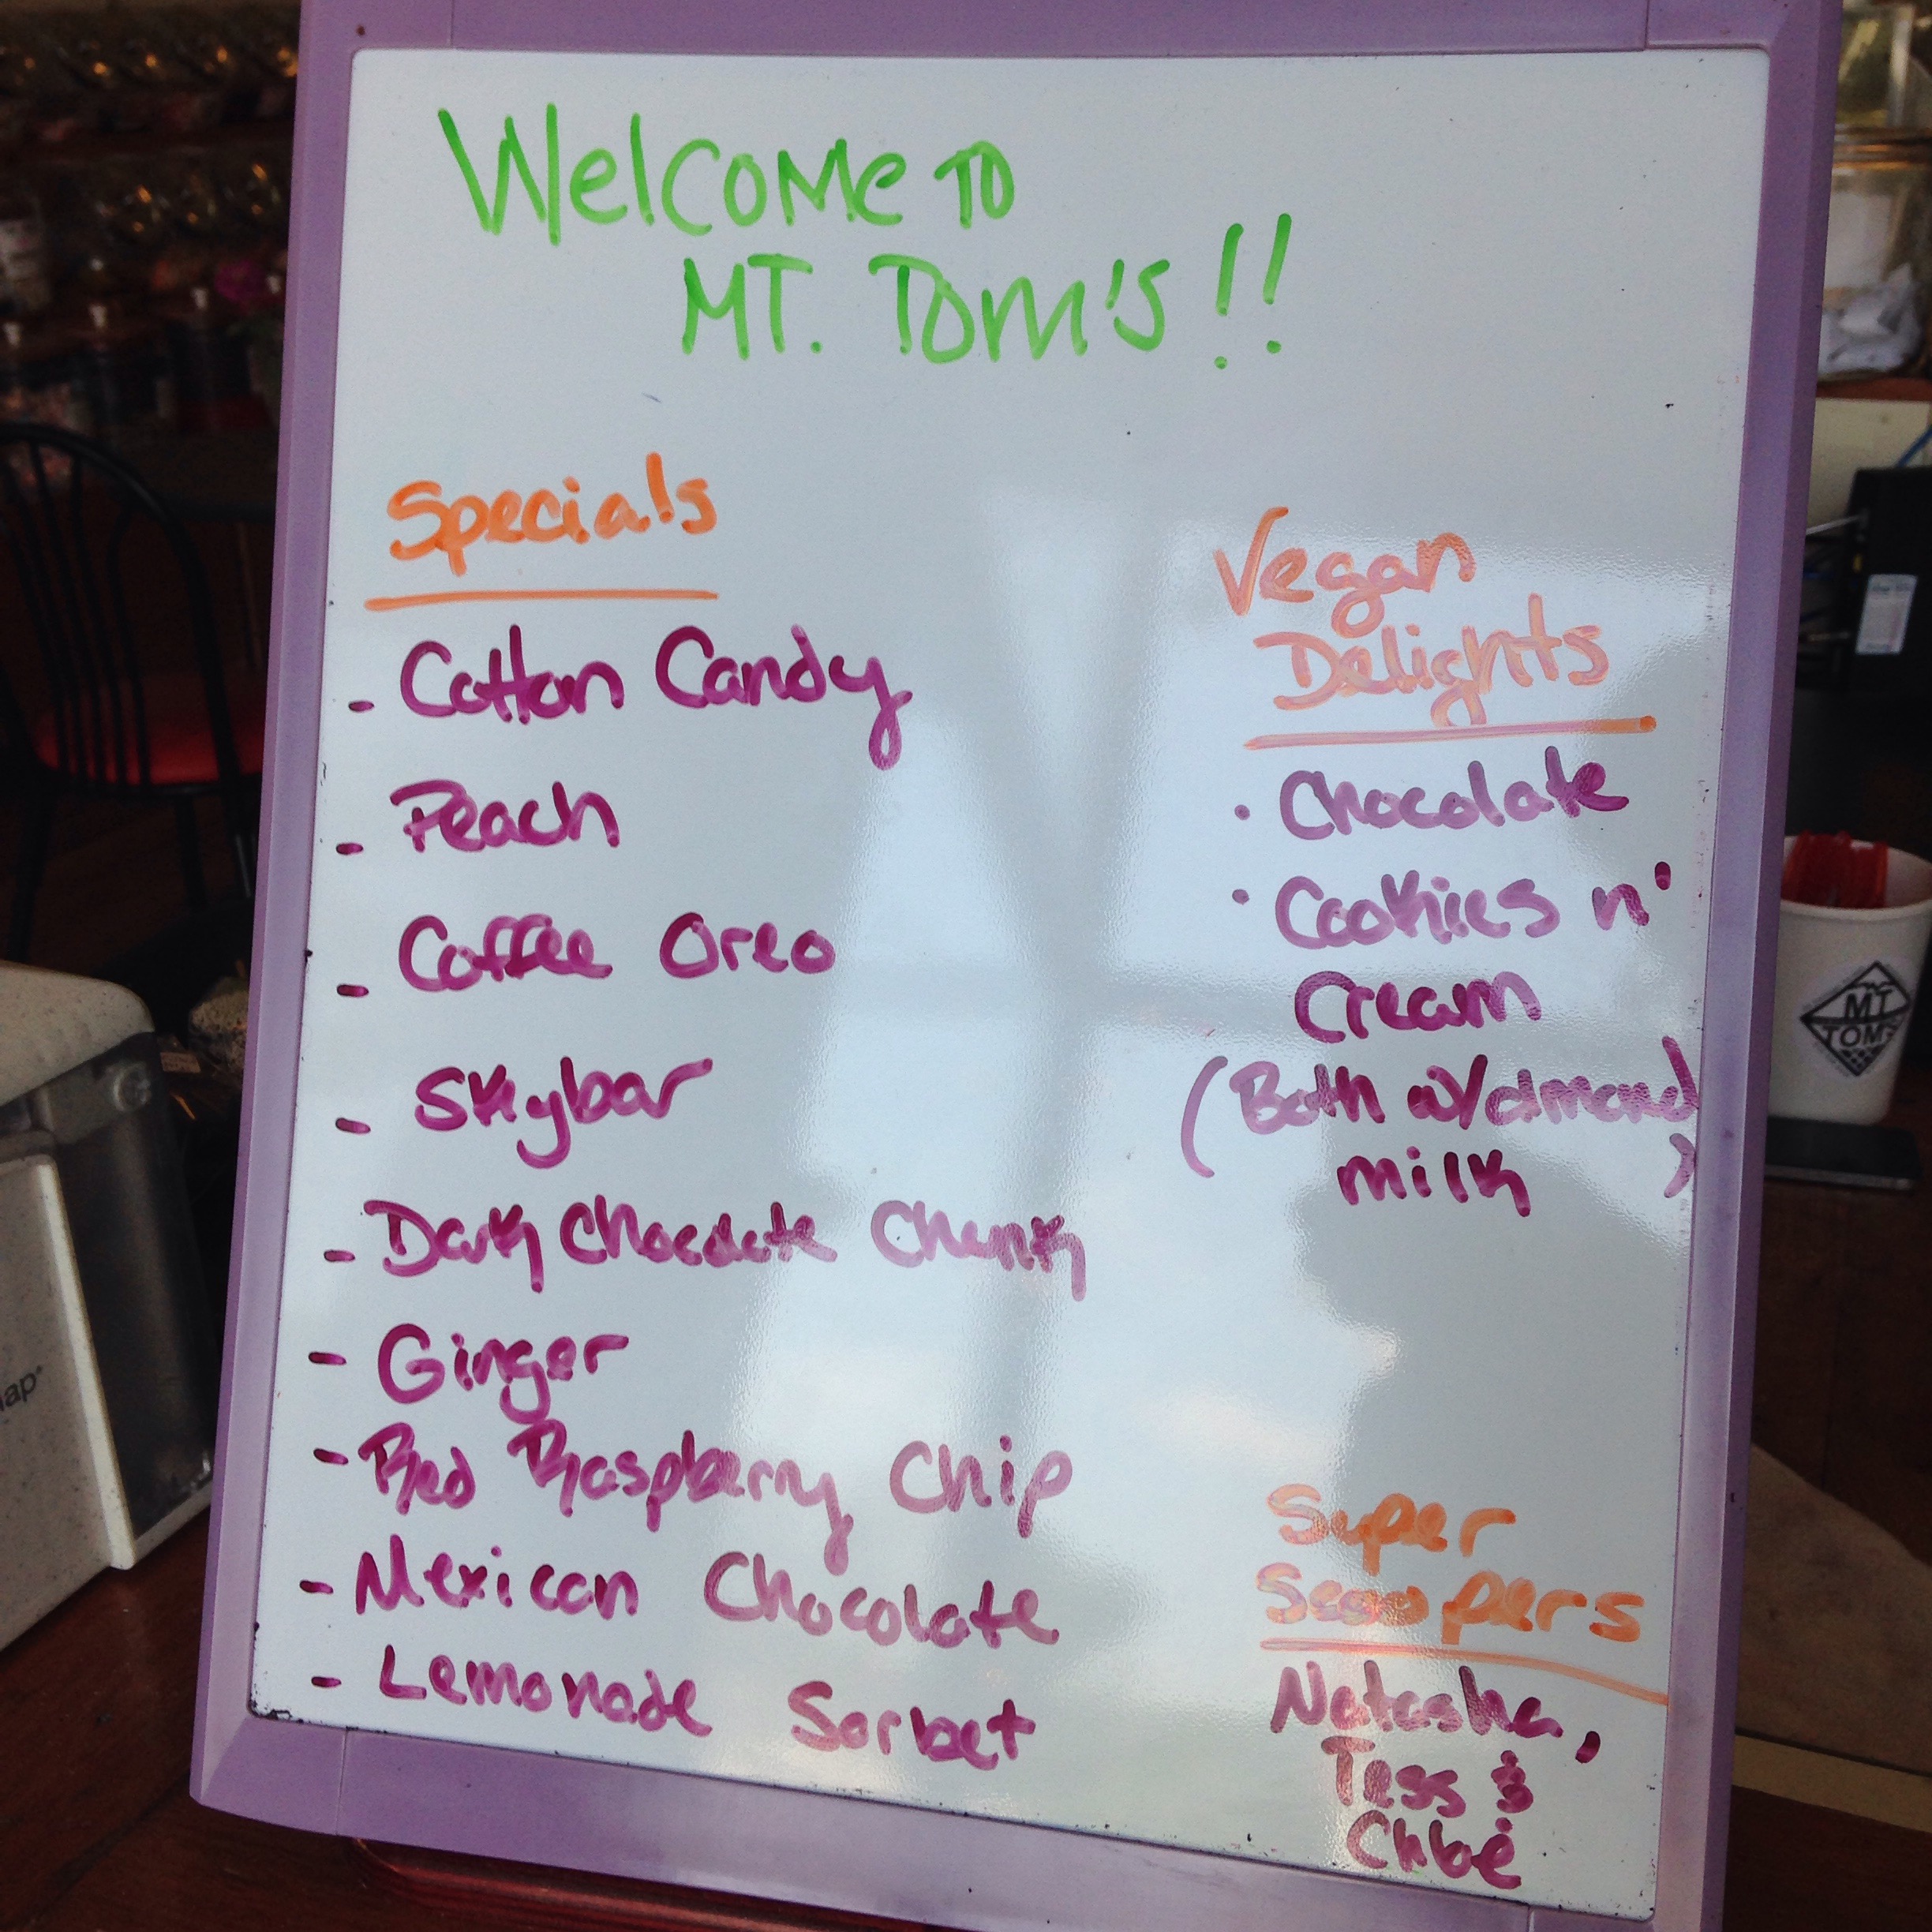 Welcome to
MT. Tom's!!
Specials
- Cotton Candy
- Peach
- Coffee Oreo
- Skybar
- Dark Chocolate Chunk
- Ginger
- Red Raspberry Chip
- Mexican Chocolate
- Lemonade Sorbet
Vegan
Delights
• Chocolate
• Cookies n'
Cream
(Both w/almond
milk)
Super
Scoopers
Natasha,
Tess &
Chloe
MT
TOM'S